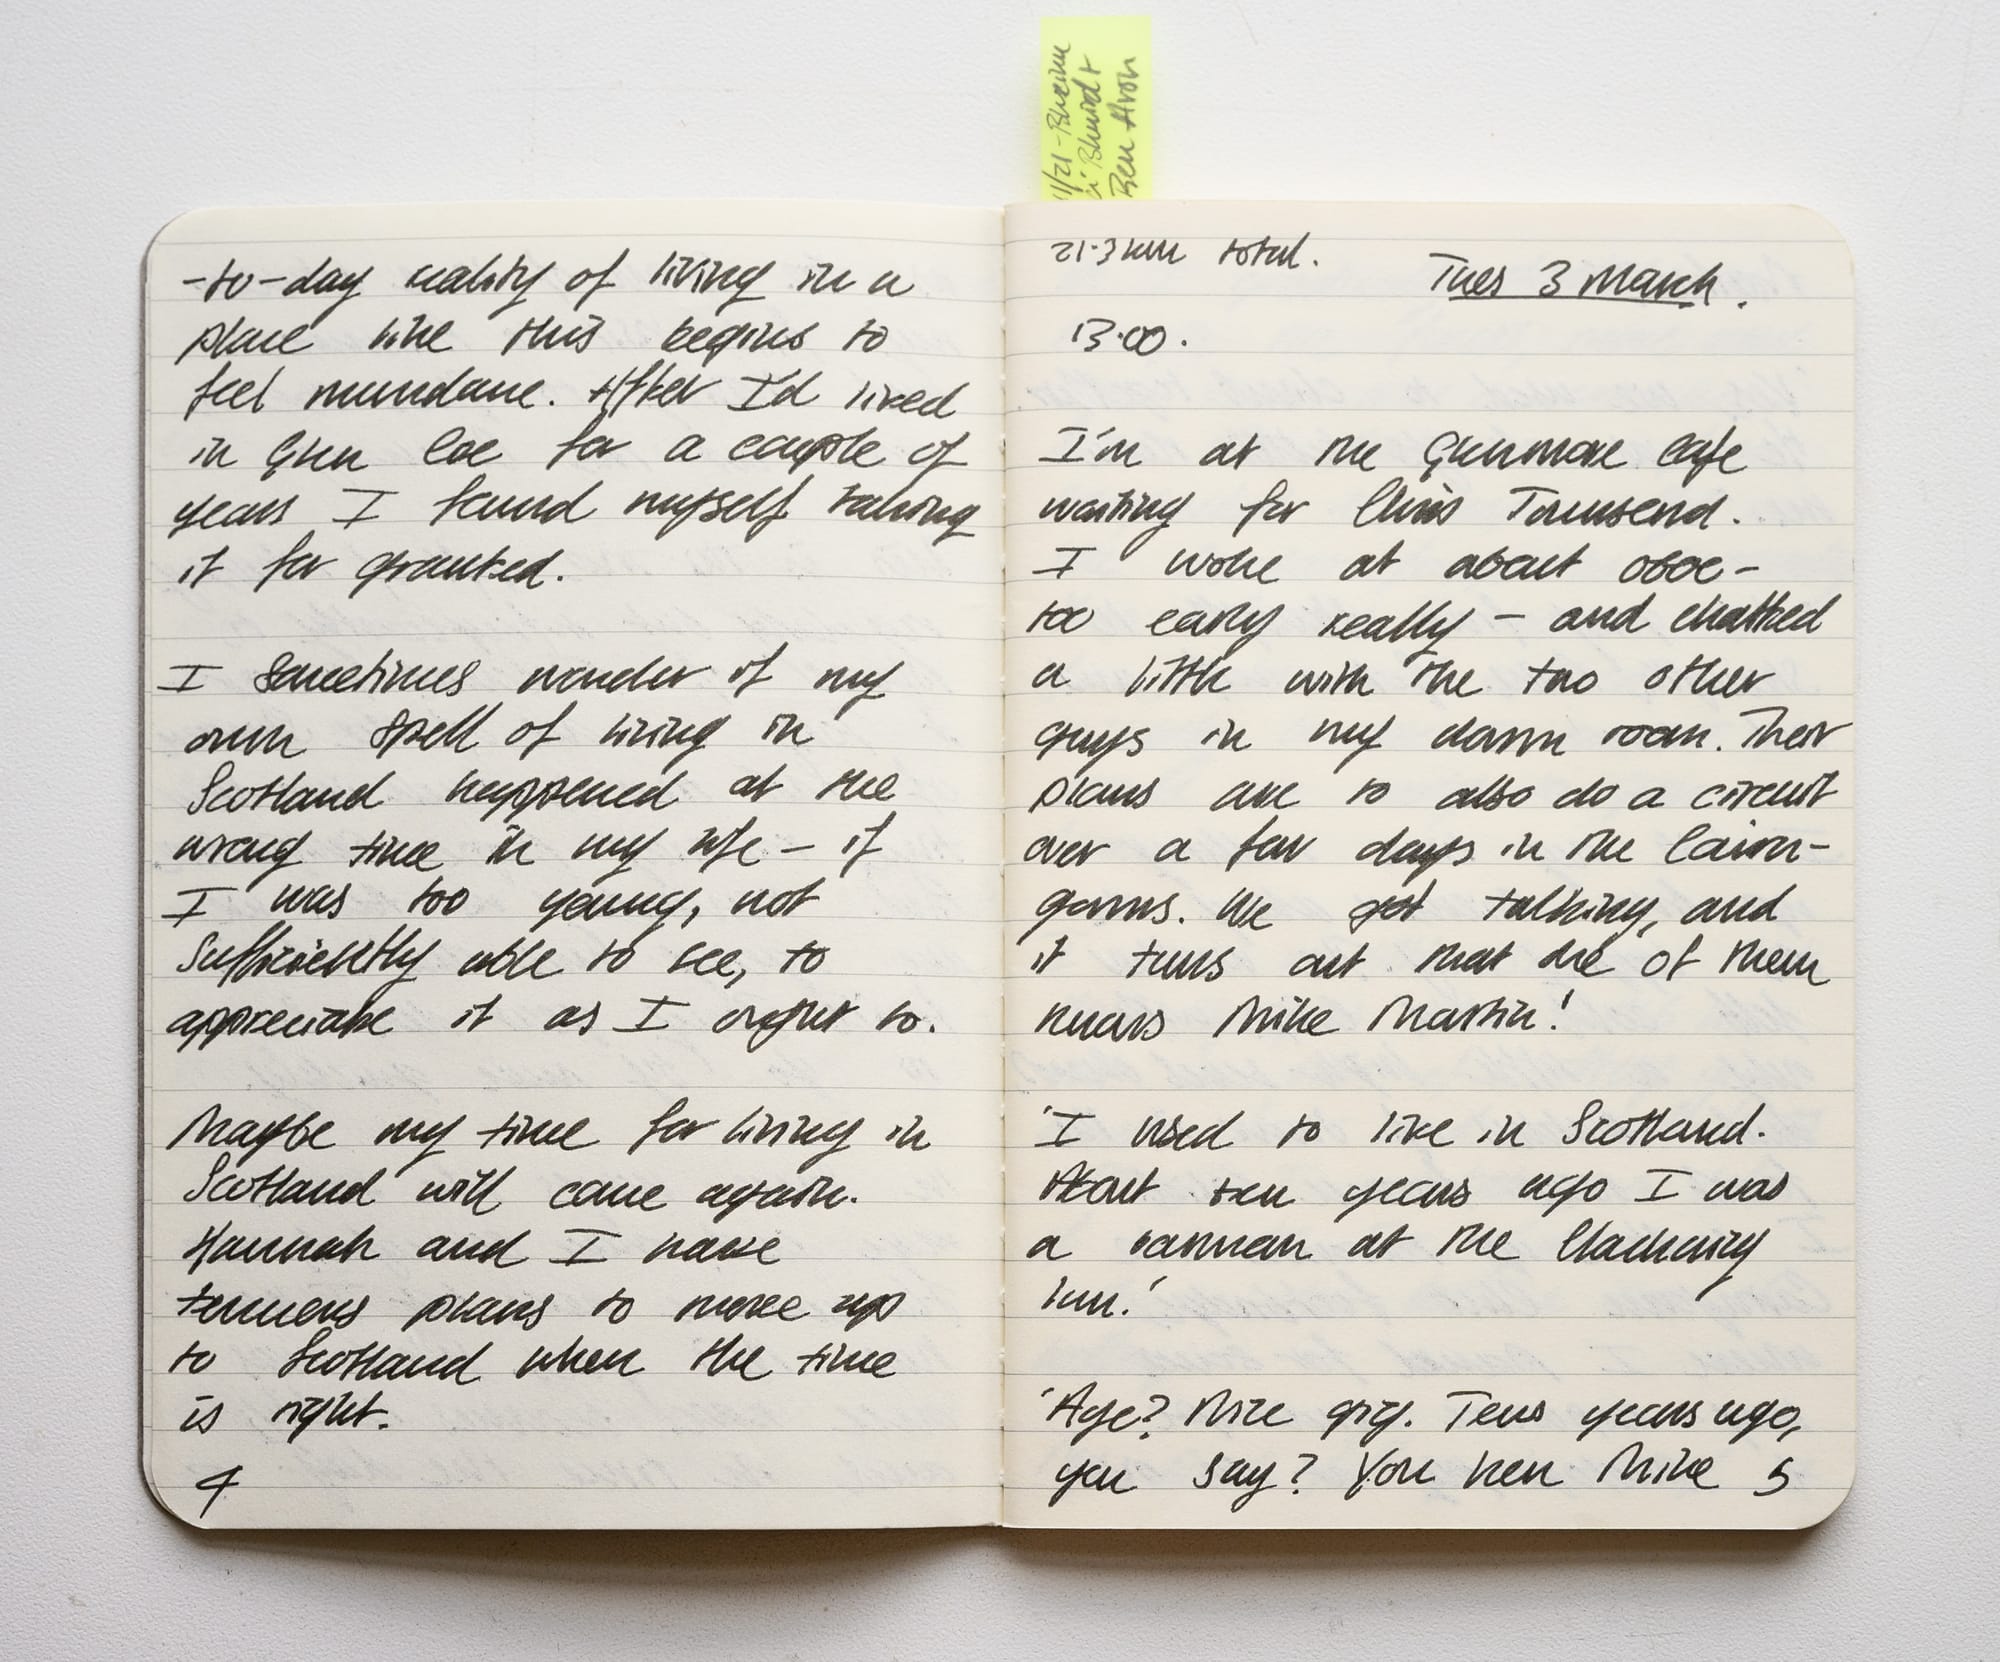 11/21 - Bheinn
a' Bhuird +
Ben Avon
-to-day reality of living in a
place like this begins to
feel mundane. After I'd lived
in Glen Coe for a couple of
years I found myself taking
it for granted.
I sometimes wonder if my
own spell of living in
Scotland happened at the
wrong time in my life - if
I was too young, not
sufficiently able to see, to
appreciate it as I ought to.
Maybe my time for living in
Scotland will come again.
Hannah and I have
plans to move up
to Scotland when the time
is right.
4
21.3km total.
Tues 3 March.
13.00.
I'm at the Glenmore Cafe
waiting for Chris Townsend.
I woke at about 0600 -
too early really - and chatted
a little with the two other
guys in my dorm room. Their
plans are to also do a circuit
over a few days in the Cairn-
gorms. We got talking, and
it turns out that one of them
knows Mike Martin!
'I used to live in Scotland.
About ten years ago I was
a barman at the Clachaig
Inn.'
'Aye? Nice gig. Tens years ago,
you say? You ken Mike
5